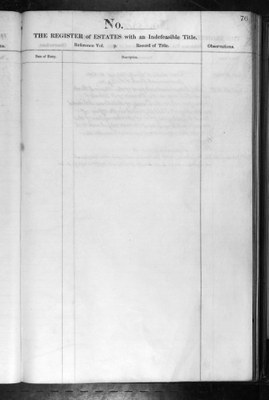 70
No.
THE REGISTER of ESTATES with an Indefeasible Title.
Reference Vol. Record of Title.
Observations.
Date of Entry.
Description.